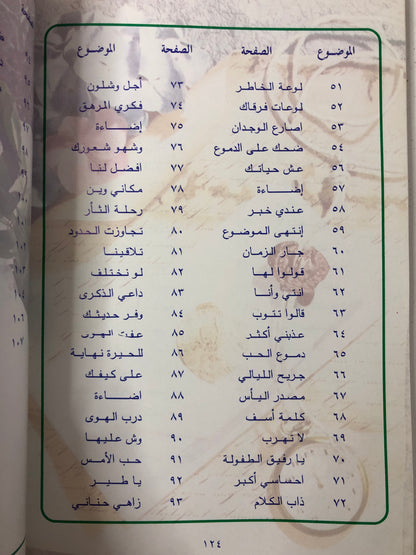 الموضوع الصفحة
٥١ لوعة الخاطر
٥٢ لوعات فرقاك
٥٣ أصارع الوجدان
٥٤ ضحك على الدموع
٥٦ عش حياتك
٥٧ إضاءة
٥٨ عندي خبر
٥٩ إنتهى الموضوع
٦٠ جار الزمان
٦١ قولوا لها
٦٢ انتي وأنا
٦٣ قالوا تتوب
٦٤ عذبني أكثر
٦٥ دموع الحب
٦٦ جريح الليالي
٦٧ مصدر اليأس
٦٨ كلمة أسف
٦٩ لا تهرب
٧٠ يا رفيق الطفولة
٧١ احساسي أكبر
٧٢ ذاب الكلام
الصفحة الموضوع
٧٣ أجل وشلون
٧٤ فكري المرهق
٧٥ إضاءة
٧٦ وشهو شعورك
٧٧ أفضل لنا
٧٨ مكاني وين
٧٩ رحلة الثأر
٨٠ تجاوزت الحدود
٨١ تلاقينا
٨٢ لو نختلف
٨٣ داعي الذكرى
٨٤ وفر حديثك
٨٥ عفت الهوى
٨٦ للحيرة نهاية
٨٧ على كيفك
٨٨ أضاءة
٨٩ درب الهوى
٩٠ وش عليها
٩١ حب الأمس
٩٢ يا طير
٩٣ زاهي حناني
١٢٤
١٠٤
١٠٦
١٠٧